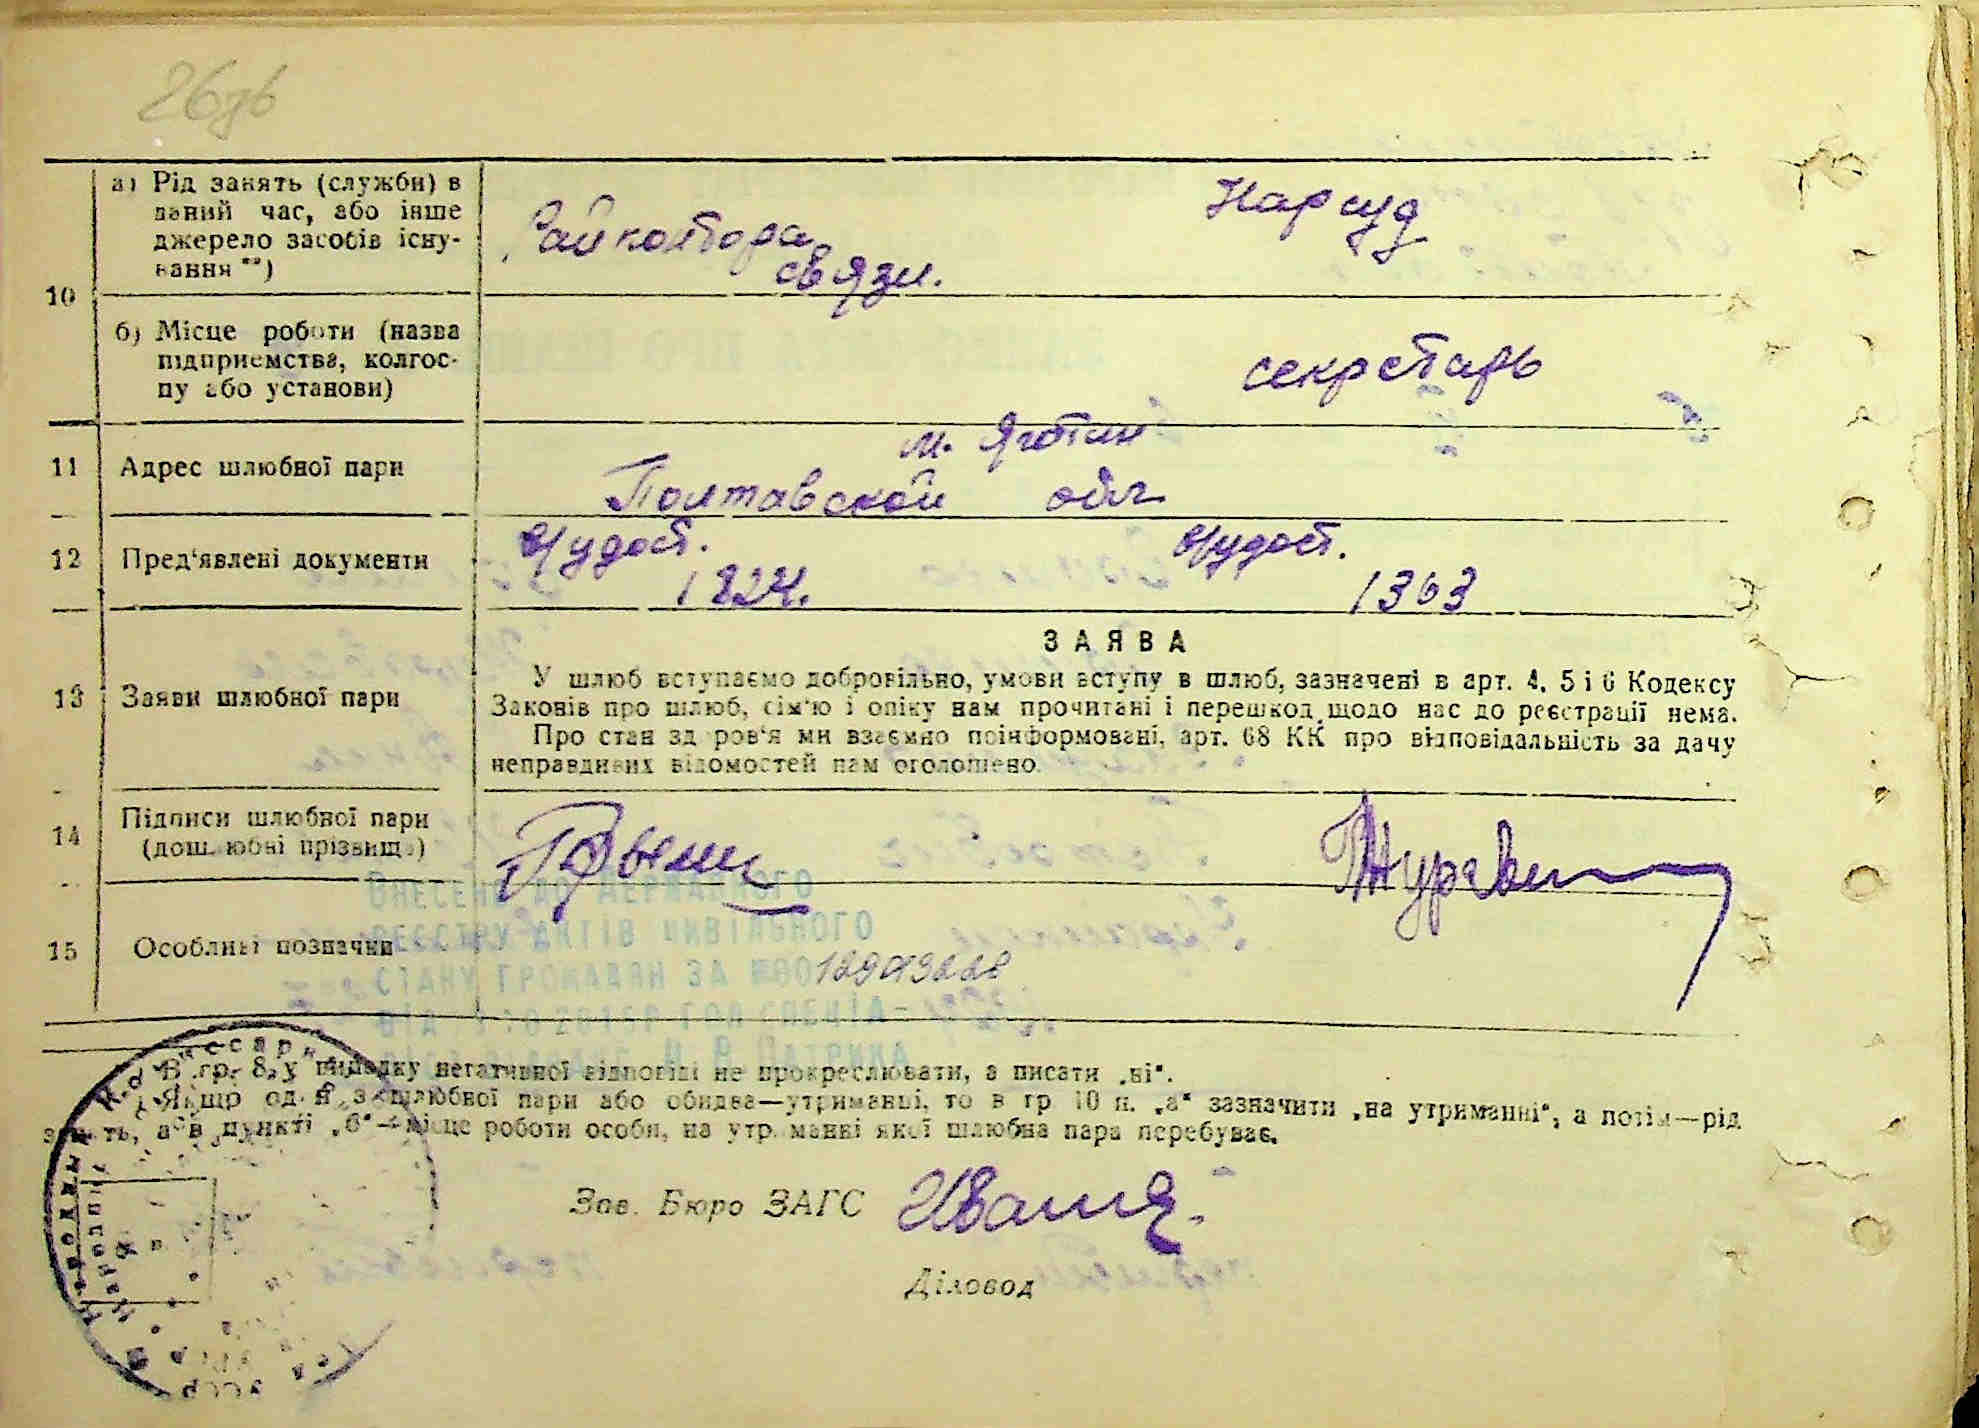 26зв
10
а) Рід занять (служби) в
даний час, або інше
джерело засобів існу-
вання **)
Райконтора
связи.
Нарсуд
б) Місце роботи (назва
підприємства, колгос-
пу або установи)
секретарь
11
Адрес шлюбної пари
м. Яготин
Полтавской обл
12
Пред'явлені документи
в/удост.
1824.
в/удост.
1363
ЗАЯВА
13
Заяви шлюбної пари
У шлюб вступаємо добровільно, умови вступу в шлюб, зазначені в арт. 4, 5 і 6 Кодексу
Законів про шлюб, сім'ю і опіку нам прочитані і перешкод щодо нас до реєстрації нема.
Про стан здоров'я ми взаємно поінформовані, арт. 68 КК про відповідальність за дачу
неправдивих відомостей нам оголошено.
14
Підписи шлюбної пари
(дошлюбні прізвища)
15
Особливі позначки
ВНЕСЕНО ДО ДЕРЖАВНОГО
РЕЄСТРУ АКТІВ ЦИВІЛЬНОГО
СТАНУ ГРОМАДЯН ЗА №00
ГОЛ СПЕЦІА-
*) В гр. 8, у випадку негативної відповіді не прокреслювати, а писати „ні“.
Якщо один з шлюбної пари або обидва—утриманці, то в гр 10 п. „а“ зазначити „на утриманні“, а потім—рід
занять, а в пункті „б“—місце роботи особи, на утриманні якої шлюбна пара перебуває.
Зав. Бюро ЗАГС
Діловод